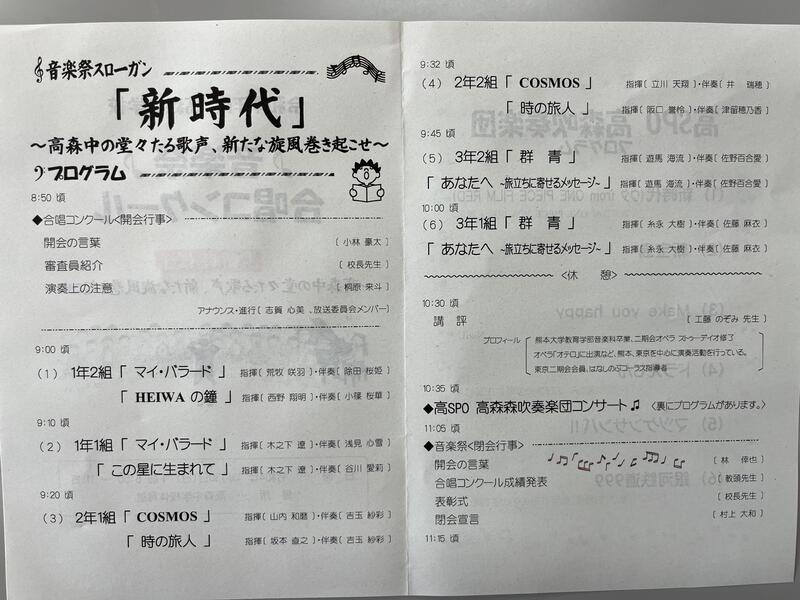 音楽祭スローガン
「新時代」
～高森中の堂々たる歌声、新たな旋風巻き起こせ～
プログラム
8:50 頃
◆合唱コンクール<開会行事>
開会の言葉 〔 小林 豪太 〕
審査員紹介 〔 校長先生 〕
演奏上の注意 〔 桐原 来斗 〕
アナウンス・進行〔 志賀 心美 、放送委員会メンバー〕
9:00 頃
(1) 1年2組「 マイ・バラード 」 指揮〔 荒牧 咲羽 〕・伴奏〔 除田 桜姫 〕
「 HEIWA の鐘 」 指揮〔 西野 翔明 〕・伴奏〔 小篠 桜華 〕
9:10 頃
(2) 1年1組「 マイ・バラード 」 指揮〔 木之下 遼 〕・伴奏〔 浅見 心雪 〕
「 この星に生まれて 」 指揮〔 木之下 遼 〕・伴奏〔 谷川 愛莉 〕
9:20 頃
(3) 2年1組「 COSMOS 」 指揮〔 山内 和磨 〕・伴奏〔 吉玉 紗彩 〕
「 時の旅人 」 指揮〔 坂本 直之 〕・伴奏〔 吉玉 紗彩 〕
9:32 頃
(4) 2年2組「 COSMOS 」 指揮〔 立川 天翔 〕・伴奏〔 井 瑞穂 〕
「 時の旅人 」 指揮〔 阪口 誉怜 〕・伴奏〔 津留穂乃香 〕
9:45 頃
(5) 3年2組「 群 青 」 指揮〔 遊馬 海流 〕・伴奏〔 佐野百合愛 〕
「 あなたへ ~旅立ちに寄せるメッセージ~ 」 指揮〔 遊馬 海流 〕・伴奏〔 佐野百合愛 〕
10:00 頃
(6) 3年1組「 群 青 」 指揮〔 糸永 大樹 〕・伴奏〔 佐藤 麻衣 〕
「 あなたへ ~旅立ちに寄せるメッセージ~ 」 指揮〔 糸永 大樹 〕・伴奏〔 佐藤 麻衣 〕
<休 憩>
10:30 頃
講 評 〔 工藤 のぞみ 先生 〕
プロフィール 熊本大学教育学部音楽科卒業、二期会オペラ ストゥーディオ修了
オペラ「オテロ」に出演など、熊本、東京を中心に演奏活動を行っている。
東京二期会会員、はなしのぶコーラス指導者
10:35 頃
◆高SPO 高森森吹奏楽団コンサート♫ 〈裏にプログラムがあります。〉
11:05 頃
◆音楽祭<閉会行事>
開会の言葉 〔 林 倖也 〕
合唱コンクール成績発表 〔 教頭先生 〕
表彰式 〔 校長先生 〕
閉会宣言 〔 村上 大和 〕
11:15 頃